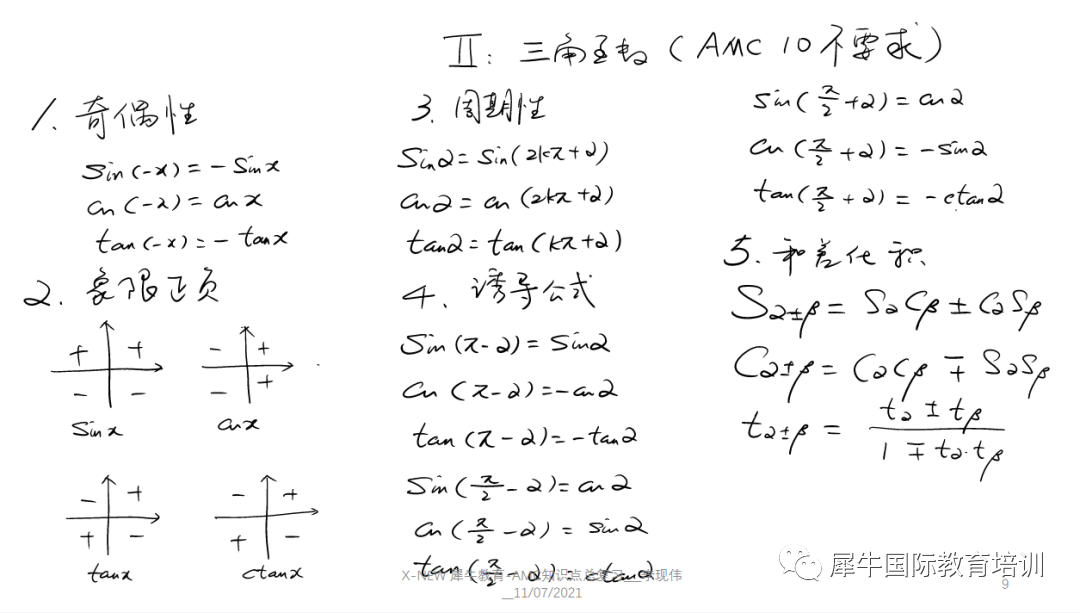 II: 三角函数 (AMC 10 不要求)
1. 奇偶性
sin(-x) = -sinx
cos(-x) = cosx
tan(-x) = -tanx
2. 象限正负
+ +
- -
sinx
- +
- +
cosx
- +
+ -
tanx
- +
+ -
ctanx
3. 周期性
sinα = sin(2kπ+α)
cosα = cos(2kπ+α)
tanα = tan(kπ+α)
4. 诱导公式
sin(π-α) = sinα
cos(π-α) = -cosα
tan(π-α) = -tanα
sin(π/2-α) = cosα
cos(π/2-α) = sinα
tan(π/2-α) = ctanα
sin(π/2+α) = cosα
cos(π/2+α) = -sinα
tan(π/2+α) = -ctanα
5. 和差化积
Sα±β = SαCβ ± CαSβ
Cα±β = CαCβ ∓ SαSβ
tα±β = (tα ± tβ) / (1 ∓ tα·tβ)
X-NEW 犀牛教育-AMC知识点总复习__李现伟
__11/07/2021
犀牛国际教育培训
9